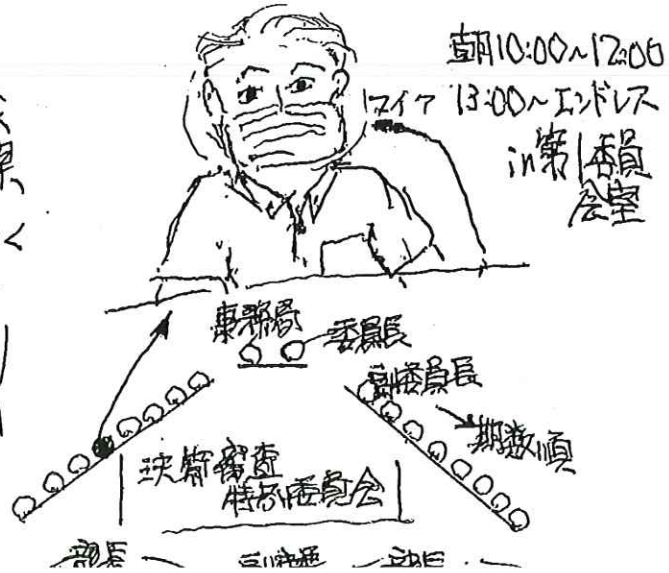 朝10:00~12:00
マイク 13:00~エンドレス
in第1委員
会室
く
事務局
委員長
副委員長
期数順
決算審査
特別委員会
部長